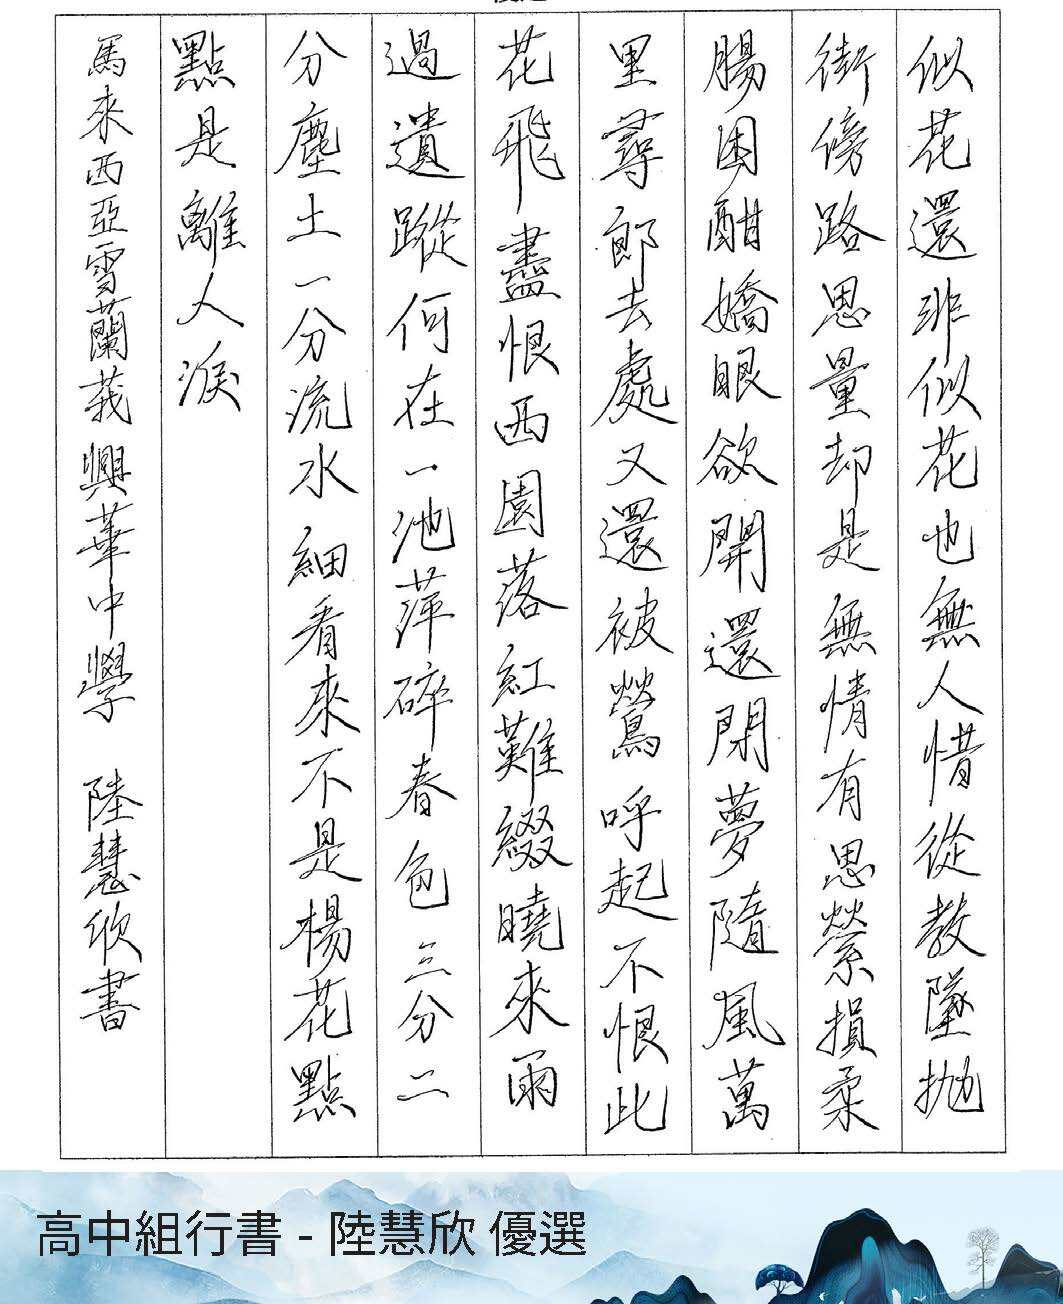 似花還非似花也無人惜從教墜拋
街傍路思量却是無情有思縈損柔
腸困酣嬌眼欲開還閉夢隨風萬
里尋郎去處又還被鶯呼起不恨此
花飛盡恨西園落紅難綴曉來雨
過遺蹤何在一池萍碎春色三分二
分塵土一分流水細看來不是楊花點
點是離人淚
馬來西亞雪蘭莪興華中學 陸慧欣書
高中組行書 - 陸慧欣 優選